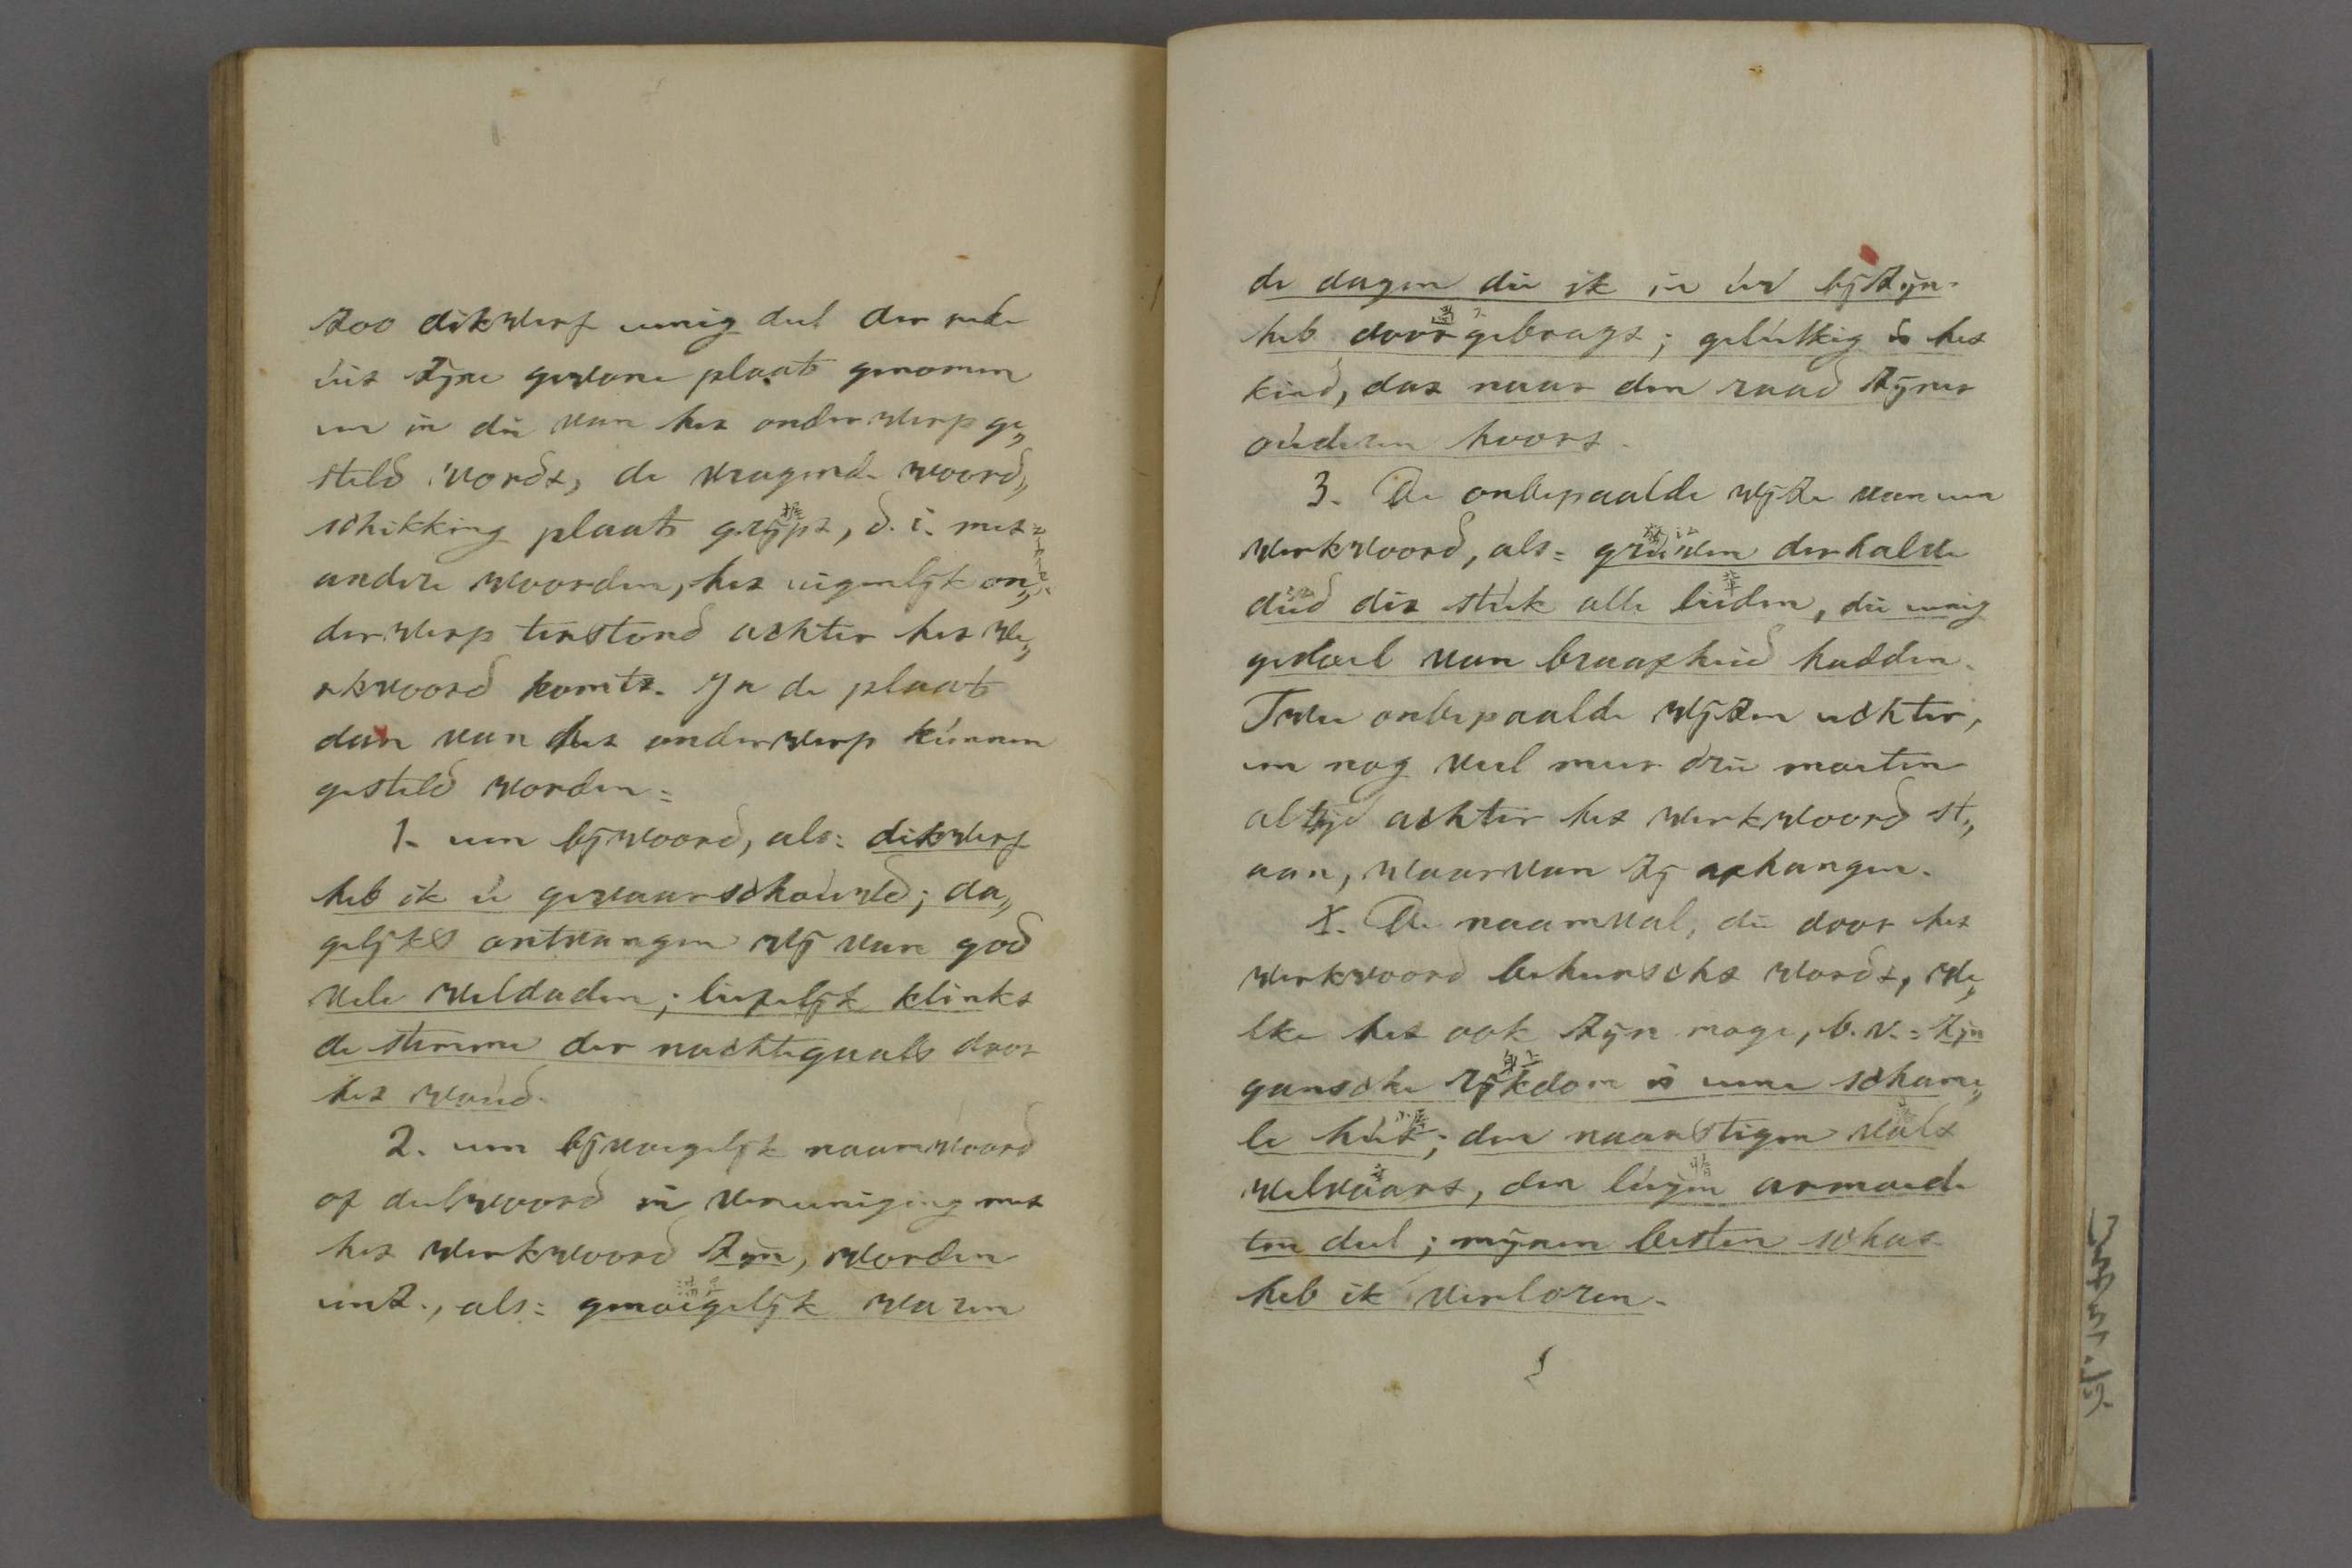 zoo dikwerf eenig deel der rede
uit zijne gewone plaats genomen
en in die van het onderwerp ge„
steld wordt, de vragende woord„
schikking plaats grijpt, d. i. met
andere woorden, het eigenlijk on„
derwerp terstond achter het we„
rkwoord komt. In de plaats
dan van het onderwerp kunnen
gesteld worden:
1. een bijwoord, als: dikwerf
heb ik u gewaarschouwd; da„
gelijks ontvangen wij van god
vele weldaden; liefelijk klinkt
de stemme der nachtegaals door
het woud.
2. een bijvoegelijk naamwoord
of deelwoord in vereeniging met
het werkwoord zijn, worden
enz., als: genoegelijk waren
de dagen die ik in uw bijzijn
heb doorgebragt; gelukkig is het
kind, dat naar den raad zijner
ouderen hoort.
3. De onbepaalde wijze van een
werkwoord, als: gruwen derhalve
deed dit stuk alle lieden, die eenig
gevoel van braafheid hadden.
Twee onbepaalde wijzen achter,
en nog veel meer drie moeten
altijd achter het werkwoord st„
aan, waarvan zij afhangen.
4. De naamval, die door het
werkwoord beheerscht wordt, we„
lke het ook zijn moge, b. v.: zijn
gansche rijkdom is eene schame„
le hut; den naarstigen valt
welvaart, den luijen armoede
ten deel; mijnen besten schat
heb ik verloren.